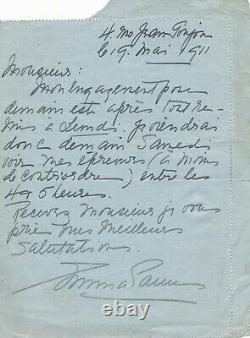 4 rue Jean Goujon
le 19 Mai 1911
Monsieur:
Mon engagement pour
demain est après tout re-
mis à Lundi. Je viendrai
donc demain Samedi
voir mes épreuves (à moins
de contrordre) entre les
4 5 heures.
Recevez Monsieur je vous
prie mes meilleurs
salutations.
Emma Eames
© thumba.com